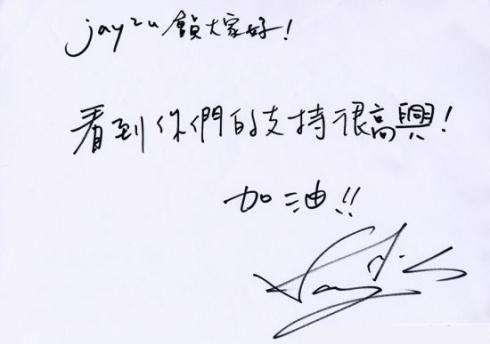 jay2u 願大家好!
看到你們的支持很高興!
加油!!